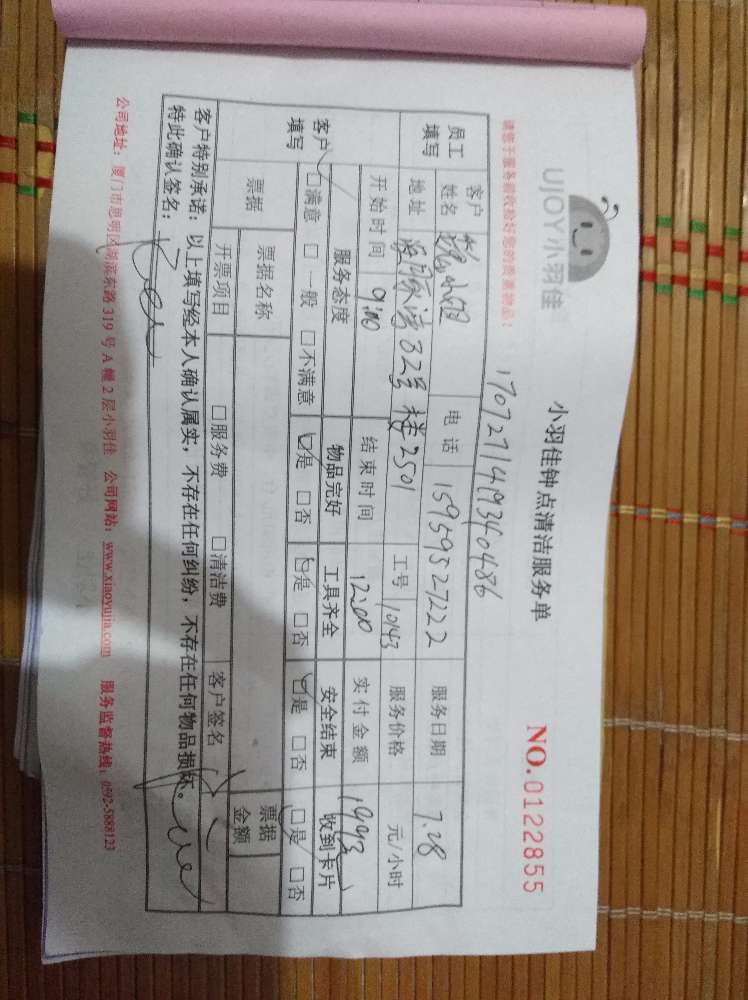 UJOY小羽佳
小羽佳钟点清洁服务单
NO.0122855
请您于服务前收拾好您的贵重物品!
1707271149340486
员工填写
客户姓名 小姐 电话 15959527222 服务日期 7.28
地址 82号楼2501 工号 10143 服务价格 元/小时
开始时间 9:00 结束时间 12:00 实付金额
客户填写
服务态度 物品完好 工具齐全 安全结束 收到卡片
□满意 □一般 □不满意 □是 □否 □是 □否 □是 □否 □是 □否
票据 票据名称 票据金额
开票项目 □服务费 □清洁费 客户签名
客户特别承诺:以上填写经本人确认属实,不存在任何纠纷,不存在任何物品损坏。
特此确认签名:
公司地址:厦门市思明区湖滨东路319号A幢2层小羽佳 公司网站:www.xiaoyujia.com 服务监督热线:0592-5888123